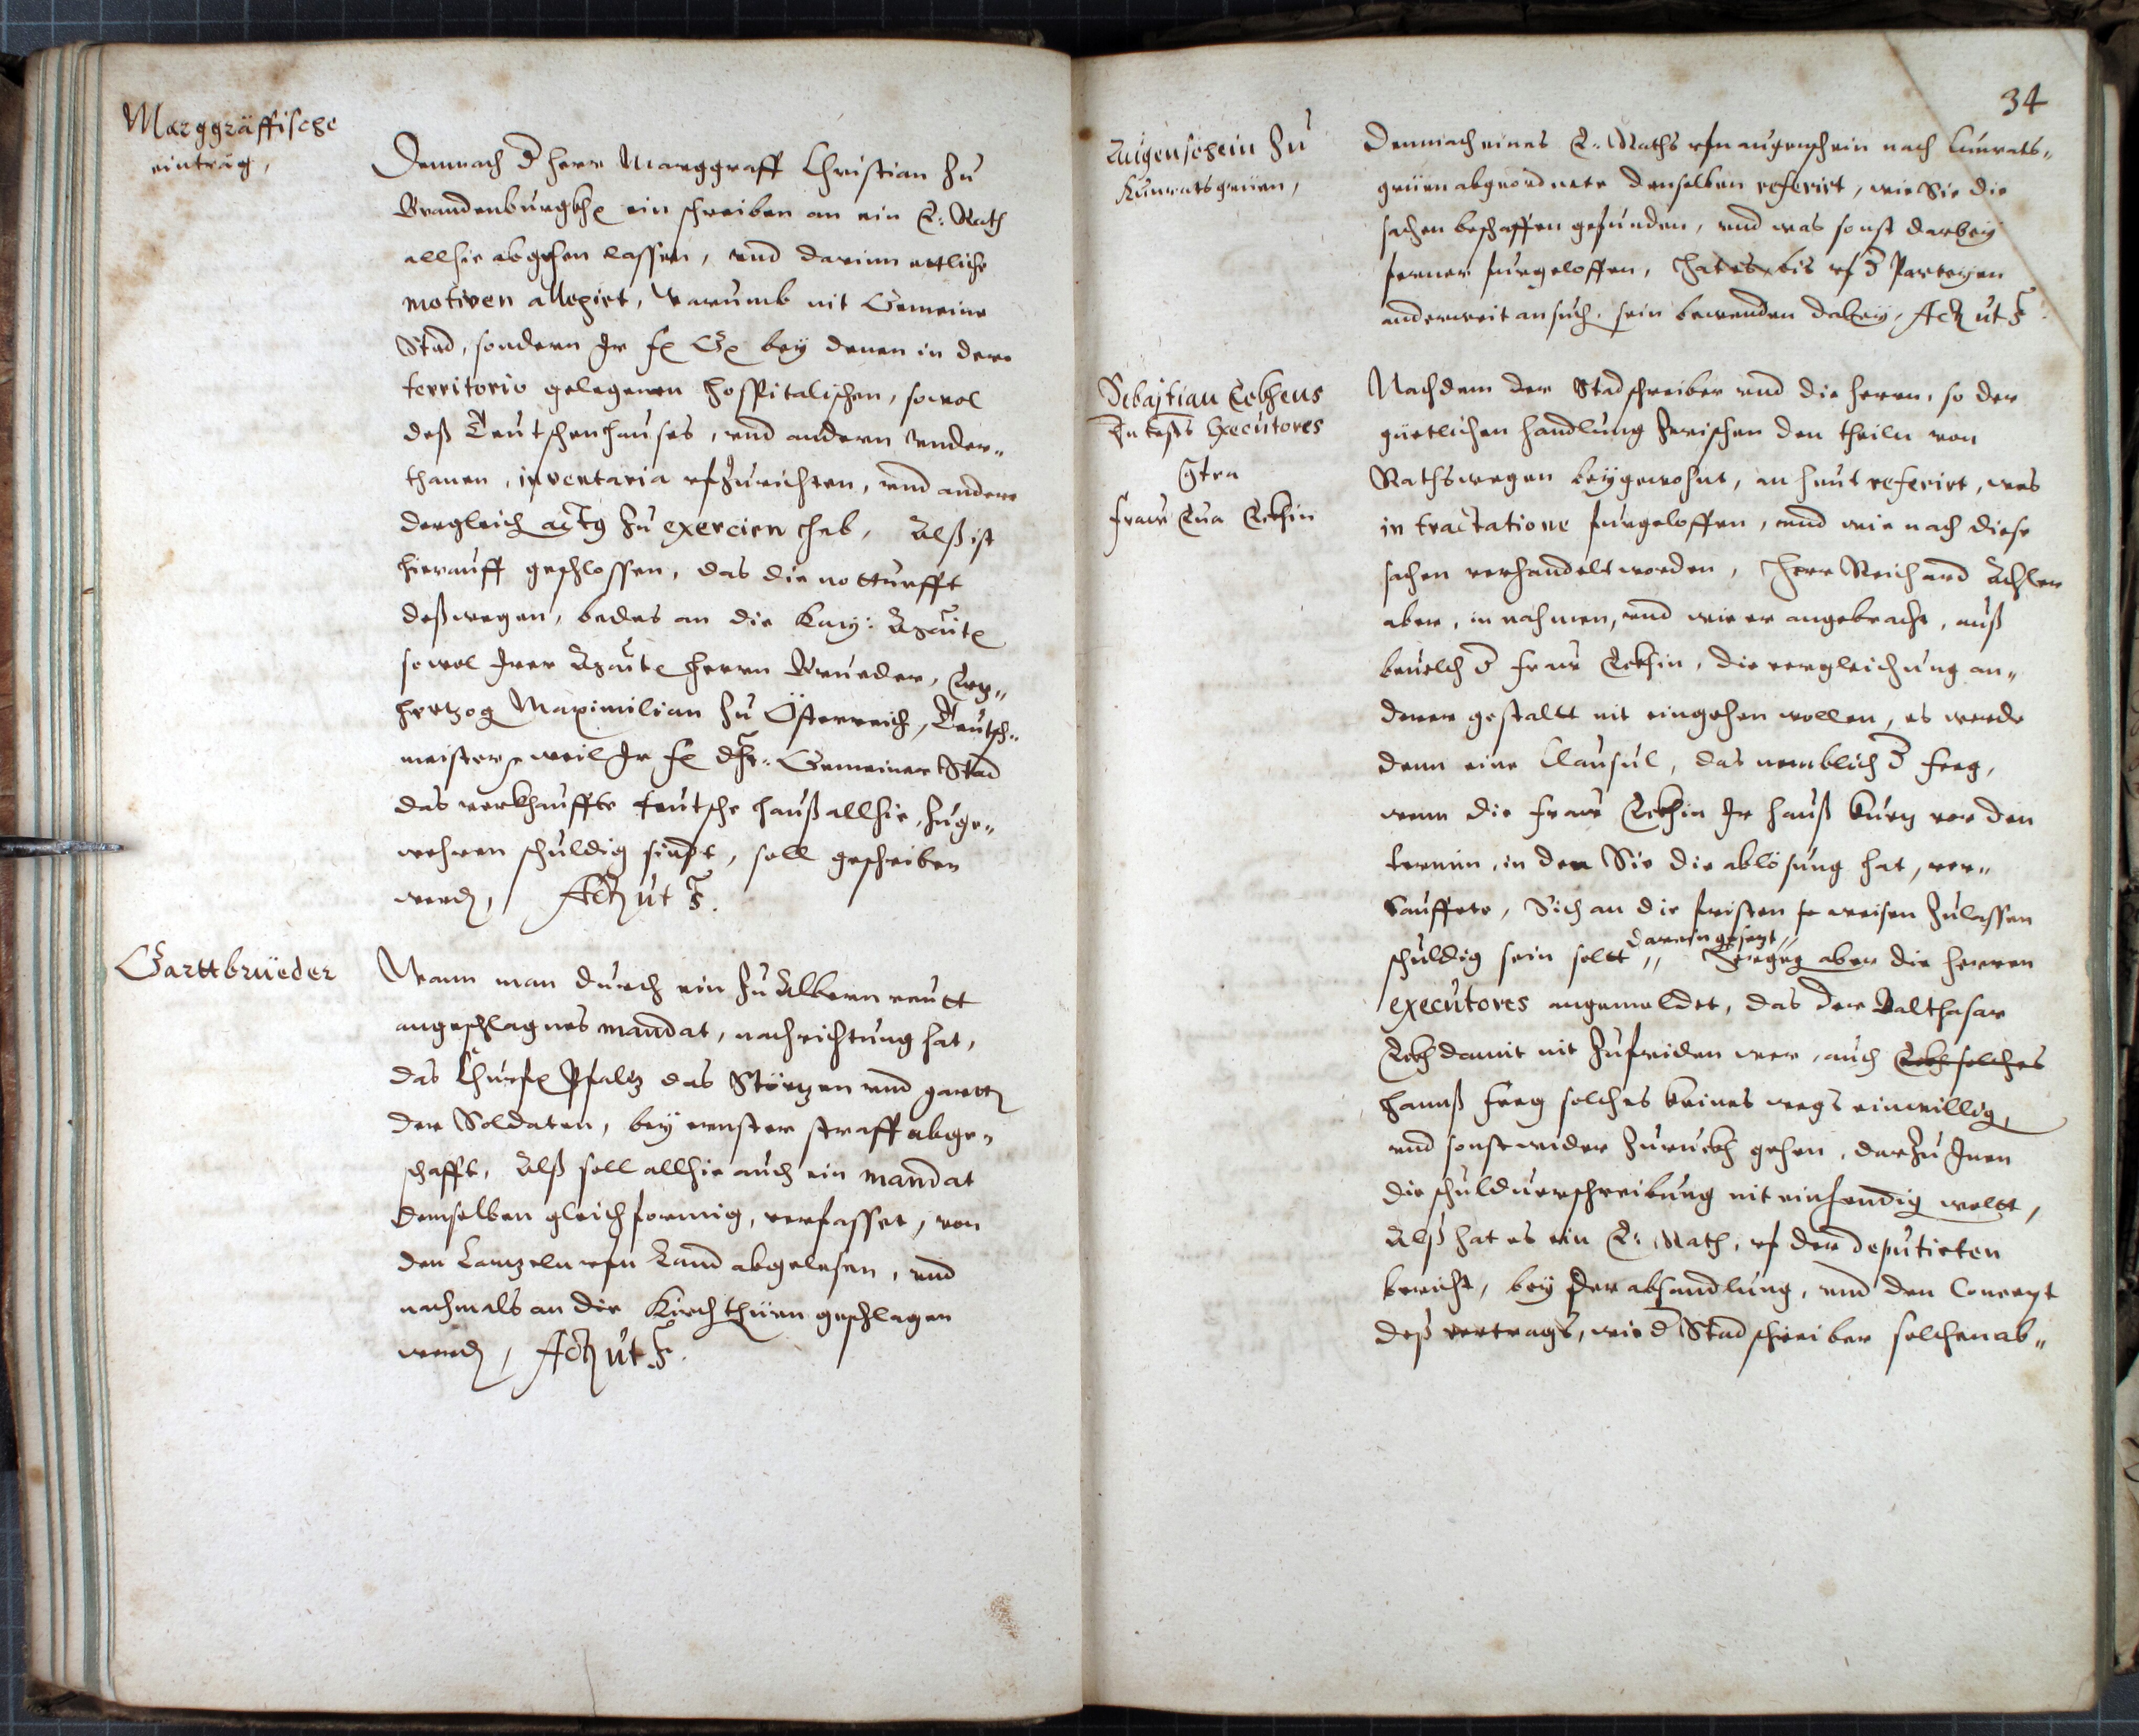 Marggräffische
einträg,
Demnach d herr Marggraff Christian zu
Brandenburgkh ein schreiben an ein E: Rath
allhie abgehen lassen, vnd darinn ettliche
motiven allegirt, warumb nit Gemeine
Stad, sondern Ir fr Gn bey denen in dero
territorio gelegenen Hospitalischen, sowol
deß Teutschenhauses, vnd andern vnder„
thanen, inventaria vfzurichten, vnd andere
dergleich actus zu exercien hab, Alß ist
hierauff geschlossen, das die notturfft
deßwegen, bedes an die Kay:
sowol Irer herrn Brueder, Ertz„
hertzog Maximilian zu Österreich, Teutsch„
meister, weil Ir fr Gemeiner Stad
das verkhauffte teutsche hauß allhie, zuge„
wehren schuldig sindt, soll geschriben
werden, Act ut S.
Garttbrüeder
Wann man durch ein zu Albernreutt
angeschlagnes mandat, nachrichtung hat,
das Churf Pfaltz das Störtzen vnd gartten
der Soldaten, bey ernster straff abge„
schafft, Alß soll allhie auch ein mandat
demselben gleichformig, verfasset, von
den Cantzeln vfm Land abgelesen, vnd
nachmals an die Kirchthüren geschlagen
werden, Act ut S.
34
Augenschein zu
Kunratsgrüen,
Demnach eines E: Raths vfm augenschein nach Cunrats„
grüen abgeordnete denselben referirt, wie Sie die
sachen beschaffen gefunden, vnd was sonst darbey
ferner furgeloffen, Hat es, bis vf d Parteyen
anderweit ansuch. sein bewenden dabey, Act ut S.
Sebastian Eckhens
In test Executores
Ctra
fraw Eva Eckhin
Nachdem der Stadschreiber vnd die herrn, so der
güetlichen handlung zwischen den theiln von
Rathswegen beygewohnt, an heut referirt, was
in tractatione furgeloffen, vnd wie nach diese
sachen verhandelt worden, Herr Reichard Achler
aber, in nahmen, vnd wie er angebracht, auß
beuelch d fraw Eckhin, die vergleichung an„
derer gestallt nit eingehen wollen, es werde
denn eine Clausul, das nemblich d Feeg,
wenn die fraw Eckhin Ir hauß kurtz vor den
termin, in den Sie die ablösung hat, ver„
kauffete, Sich an die fristen weisen zulassen
darein gesezt„
schuldig sein sollt„ Dargeg aber die herren
executores angemeldet, das der Balthasar
Eckh damit nit zufriden wer, auch Eckh solches
Hannß Feeg solches keines wegs einwillig,
vnd sonst wider zuruckh gehen, darzu Inen
die schuldverschreibung nit einhendig wollt,
Alß hat es ein E: Rath, vf der deputirten
bericht, bey der abhandlung, vnd den Concept
deß vertrags, wie d Stadschreiber solchen ab„